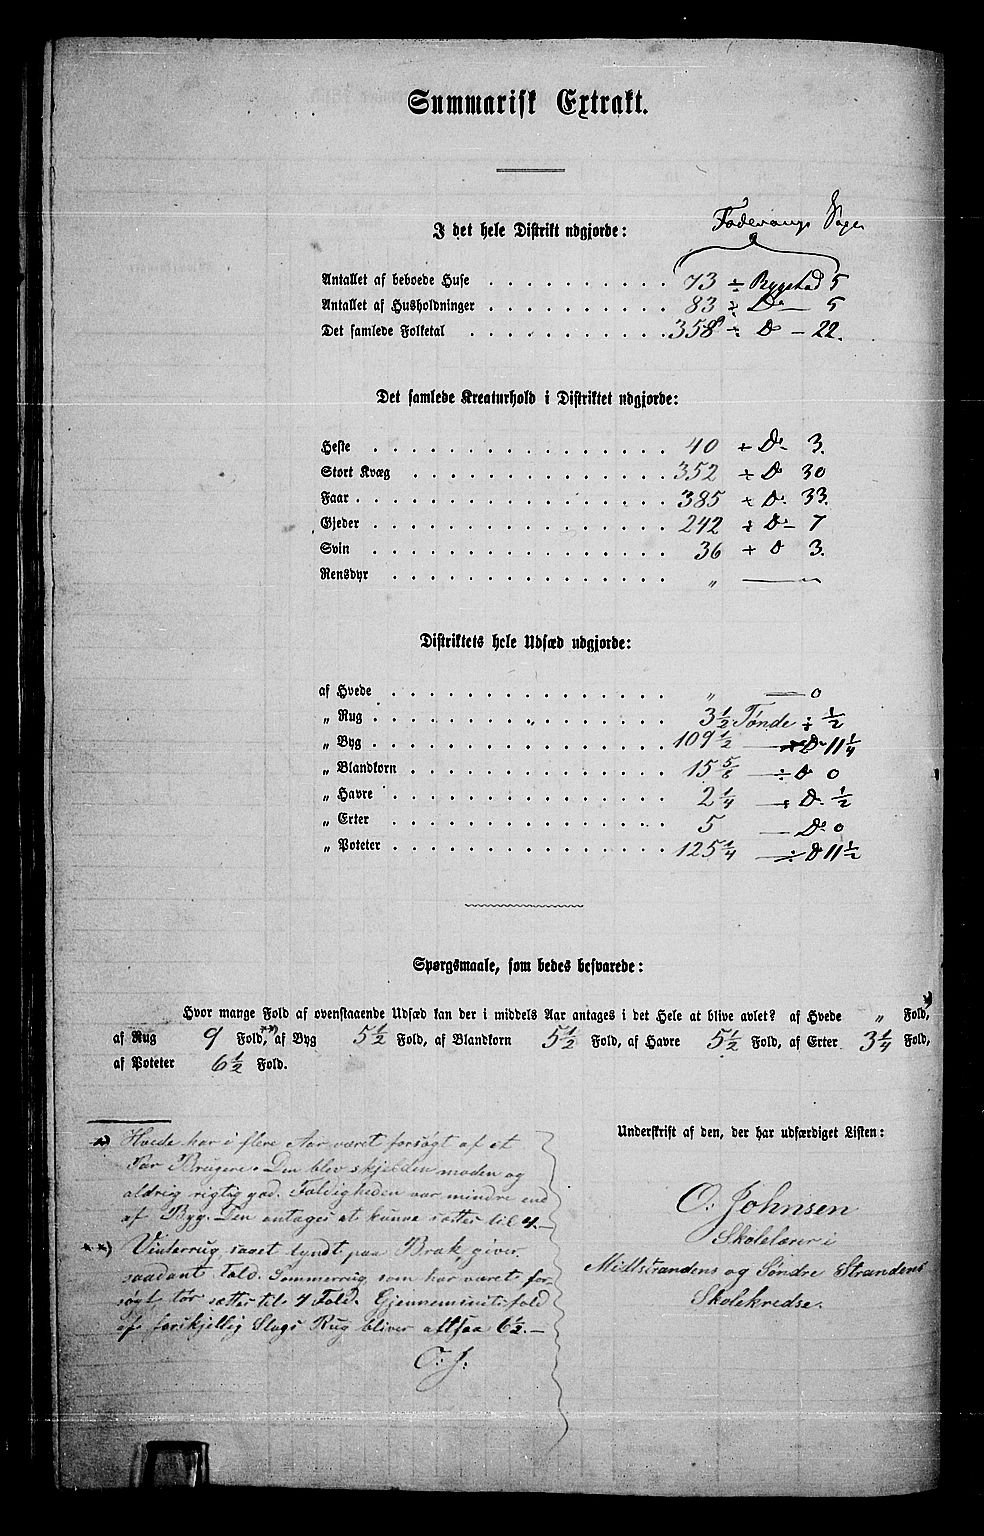 Summarisk Extrakt.
I det hele Distrikt udgjorde:
Antallet af beboede Huse 73 ÷ Bygstad 5
Antallet af Husholdninger 83 ÷ Do — 5
Det samlede Folketal 358 ÷ Do — 22.
Det samlede Kreaturhold i Distriktet udgjorde:
Heste 40 ÷ Do 3.
Stort Kvæg 352 ÷ Do 30
Faar 385 ÷ Do 33.
Gjeder 242 ÷ Do — 7
Svin 36 ÷ Do 3.
Rensdyr „ — „
Distriktets hele Udsæd udgjorde:
af Hvede „ — 0
„ Rug 3 1/2 Tønde ÷ 1/2
„ Byg 109 1/2 — ÷ Do 11 1/4
„ Blandkorn 15 5/6 — ÷ Do 0
„ Havre 2 1/4 — ÷ Do 1/2
„ Erter 5 — Do 0
„ Poteter 125 1/4 — ÷ Do 11 1/2
Spørgsmaale, som bedes besvarede:
Hvor mange Fold af ovenstaaende Udsæd kan der i middels Aar antages i det Hele at blive avlet? af Hvede „ Fold, *)
af Rug 9 Fold, **) af Byg 5 1/2 Fold, af Blandkorn 5 1/2 Fold, af Havre 5 1/2 Fold, af Erter 3 1/4 Fold,
af Poteter 6 1/2 Fold.
*) Hvede har i flere Aar været forsøgt af et
Par Brugere. Den blev skjelden moden og
aldrig rigtig god. Foldigheden var mindre end
af Byg. Den antages at kunne sættes til 4.—
**) Vinterrug, saaet tyndt paa Brak, giver
saadant Fold. Sommerrug, som har været for-
søgt, tør sættes til 4 Fold. Gjennemsnitsfold
af forskjellig Slags Rug bliver altsaa 6 1/2.—
O. J.
Underskrift af den, der har udfærdiget Listen:
O. Johnsen
Skolelærer i
Midtstrandens og Søndre Strandens
Skolekredse.